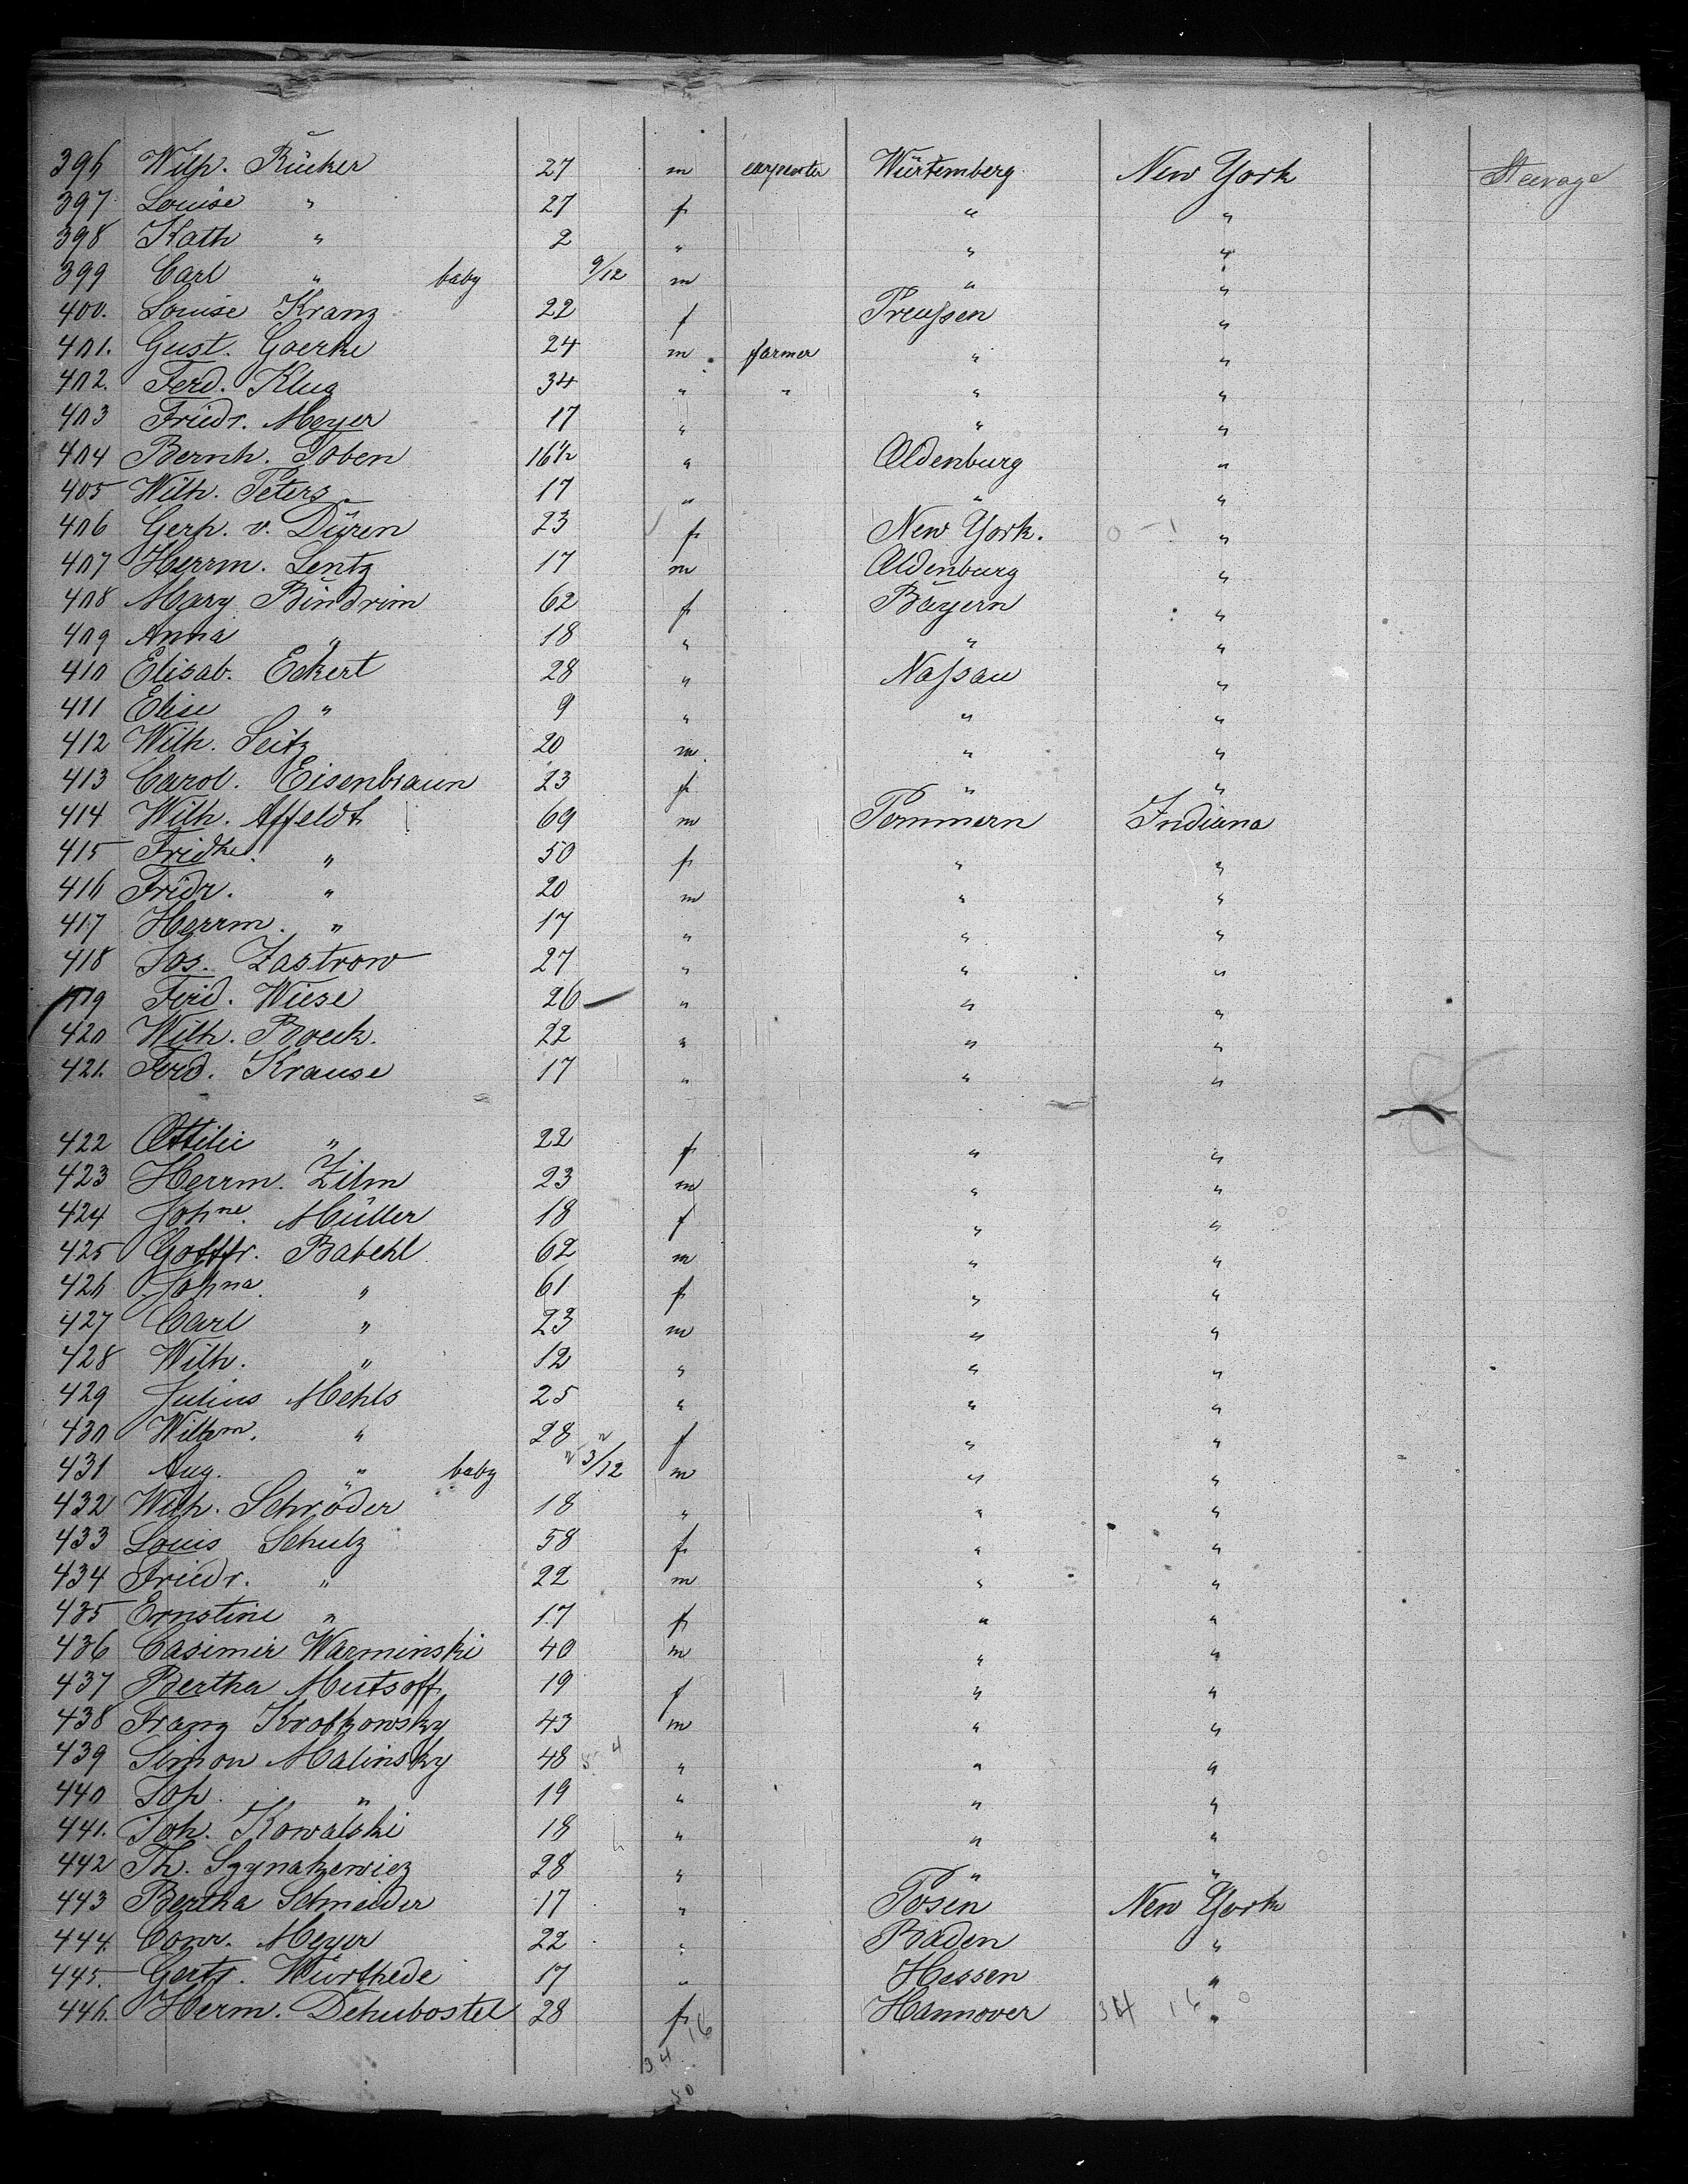 396 Wilh. Rücker 27 m carpenter Würtemberg New York Steerage
397 Louise " 27 f " "
398 Kath " 2 " " "
399 Carl " baby 9/12 m " "
400. Louise Kranz 22 f Preußen "
401. Gust. Goerke 24 m farmer " "
402. Ferd. Klug 34 " " " "
403 Friedr. Meyer 17 " " "
404 Bernh. Toben 16 1/2 " Oldenburg "
405 Wilh. Peters 17 " " "
406 Gerh. v. Düren 23 f New York. "
407 Herrm. Lentz 17 m Oldenburg "
408 Mary Bindrim 62 f Bayern "
409 Anna " 18 " " "
410 Elisab. Eckert 28 " Naßau "
411 Elise " 9 " " "
412 Wilh. Seitz 20 m " "
413 Carol. Eisenbraun 23 f " "
414 Wilh. Affeldt 69 m Pommern Indiana
415 Fridke. " 50 f " "
416 Fridr. " 20 m " "
417 Herrm. " 17 " " "
418 Jos. Zastrow 27 " " "
419 Ferd. Wiese 26 " " "
420 Wilh. Boeck. 22 " " "
421. Ferd. Krause 17 " " "
422 Ottilie " 22 f " "
423 Herrm. Zilm 23 m " "
424 Johne. Müller 18 f " "
425 Gottfr. Babehl 62 m " "
426 Johna. " 61 f " "
427 Carl " 23 m " "
428 Wilh. " 12 " " "
429 Julius Mehls 25 " " "
430 Wilhm. " 28 f " "
431 Aug. " baby 3/12 m " "
432 Wilh. Schröder 18 " " "
433 Louis Schulz 58 f " "
434 Friedr. " 22 m " "
435 Ernstine " 17 f " "
436 Casimir Warminski 40 m " "
437 Bertha Mutsoff 19 f " "
438 Franz Krotkowsky 43 m " "
439 Simon Malinsky 48 " " "
440 Joh. " 19 " " "
441. Joh. Kowalski 18 " " "
442 Th. 28 " " "
443 Bertha Schneider 17 " Posen New York
444. Conr. Meyer 22 " Baden "
445. 17 " Hessen "
446. Herm. Dehubostel 28 f Hannover "
34 16
50